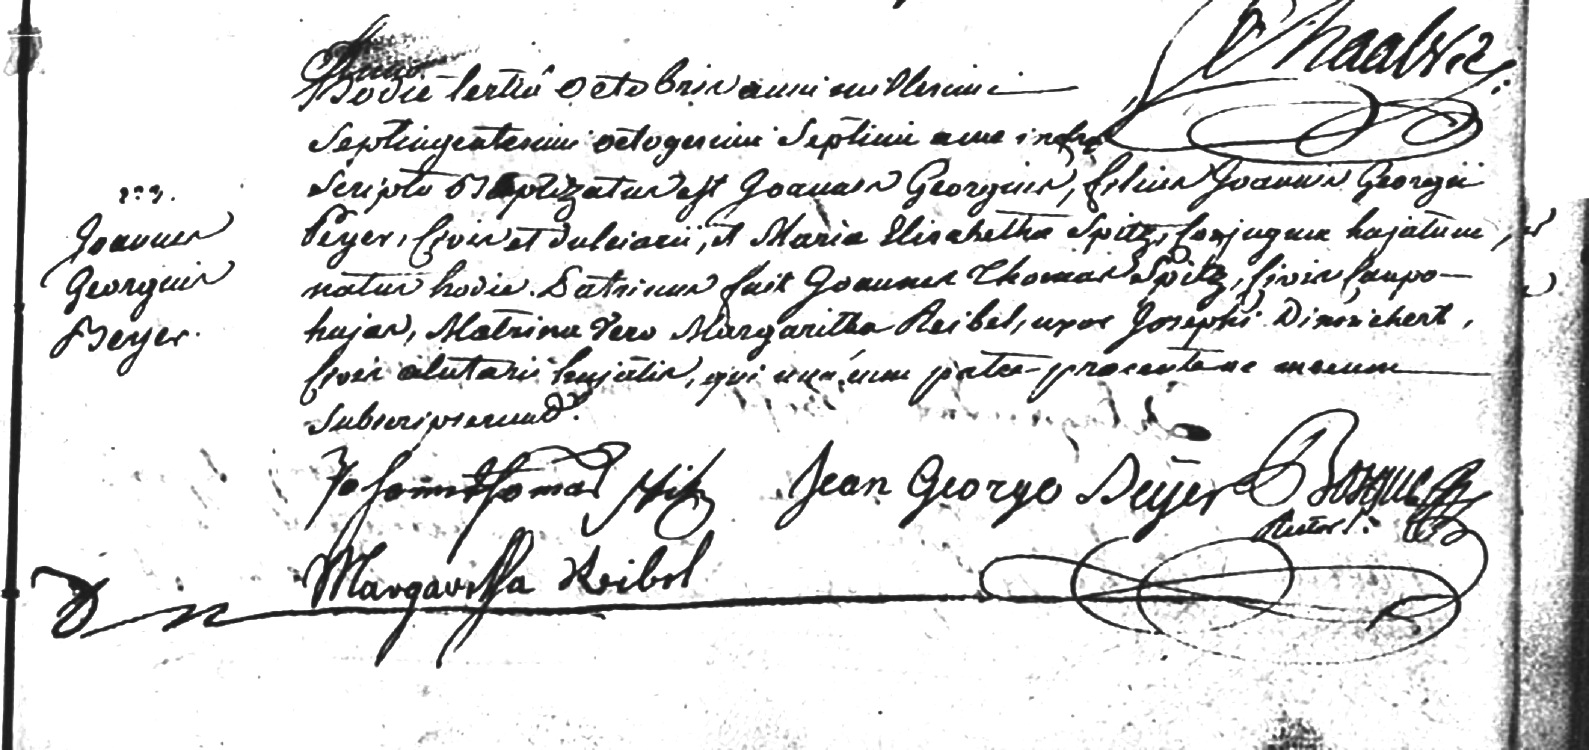 Hodie tertiâ Octobris anni millesimi
Septingentesimi octogesimi Septimi a me infra
Scripto Baptizatus est Joannes Georgius, filius Joannis Georgii
Beyer, Civis et dulciarii, et Maria Elisabetha Spitz, Conjugum hujatum, et
natus hodie. Patrinus fuit Joannes Thomas Spitz, Civis Caupo
hujas, Matrina Vero Margaritha Reibel, uxor Josephi
Civis alutarii hujatis, qui unà cum patre praesente ac mecum
Subscripserunt.
Joannes
Georgius
Beyer.
Johann Thomas Spitz Jean George Beyer
Rector
Margaretha Reibel